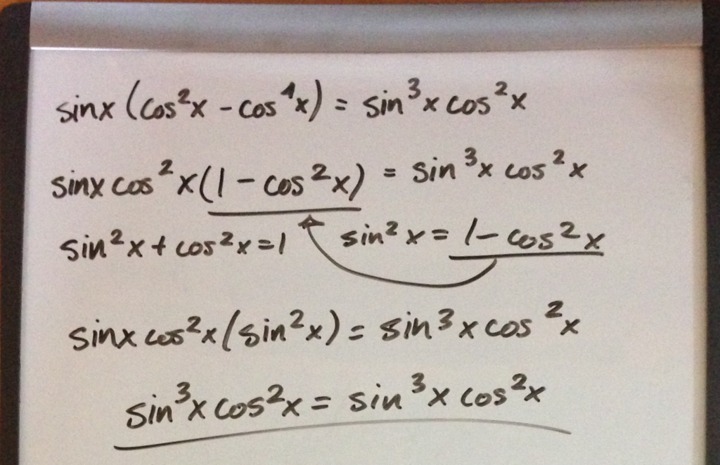 sinx (cos²x - cos⁴x) = sin³x cos²x
sinx cos²x (1 - cos²x) = sin³x cos²x
sin²x + cos²x = 1 sin²x = 1 - cos²x
sinx cos²x (sin²x) = sin³x cos²x
sin³x cos²x = sin³x cos²x